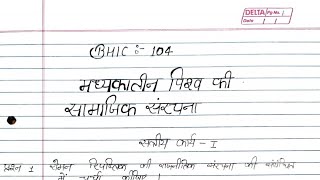 DELTA Pg No.
Date
BHIC :- 104
मध्यकालीन विश्व की
सामाजिक संरचना
सत्रीय कार्य - I
1 रोमन रिपब्लिक की राजनीतिक संरचना की
में चर्चा कीजिए।